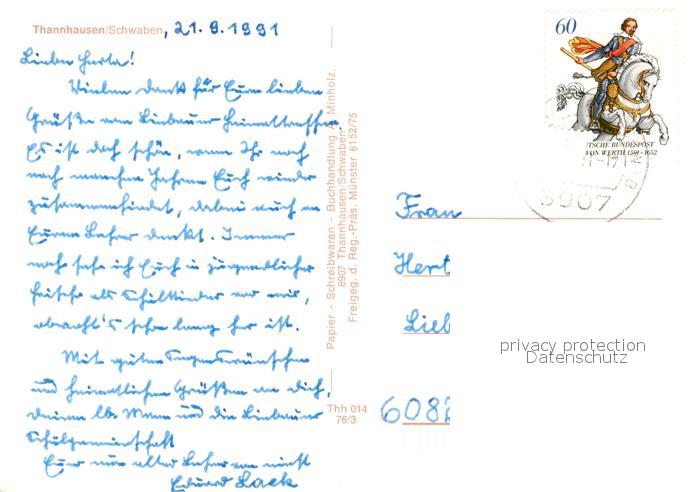 Thannhausen/Schwaben, 21.9.1991
Liebe Herta!
Vielen Dank für Eure lieben
Grüße vom Liebauer Heimattreffen.
Es ist doch schön, wenn Ihr noch
nach manchen Jahren Euch wieder
zusammenfindet, dabei auch an
Euren Lehrer denkt. Immer
noch sehe ich Euch in jugendlicher
Frische als Schulkinder vor mir,
obwohl's schon lang her ist.
Mit guten Segenswünschen
und heimatlichen Grüßen an Dich,
Deinen lb. Mann und die Liebauer
Schulgemeinschaft
Euer nun alter Lehrer von einst
Eduard Lack
Papier - Schreibwaren - Buchhandlung A. Minholz,
8907 Thannhausen/Schwaben
Freigeg. d. Reg.-Präs. Münster 6152/75
Thh 014
76/3
60
DEUTSCHE BUNDESPOST
VON WERTH 1591-1652
8907
Frau
Hert
Lieb
608
privacy protection
Datenschutz